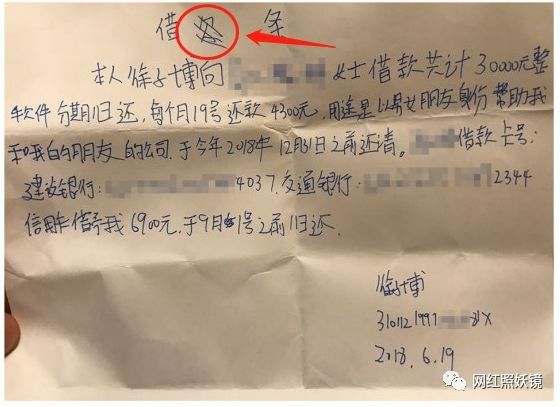 借 条
本人徐子博向 女士借款共计30000元整
软件分期归还,每个月19号还款4300元,用途是以男女朋友身份帮助我
和我的朋友的公司.于今年2018年12月31日之前还清。 借款卡号:
建设银行: 4037.交通银行: 2344
信用卡借予我6900元,于9月1号之前归还.
徐子博
310112199 81X
2018.6.19
网红照妖镜